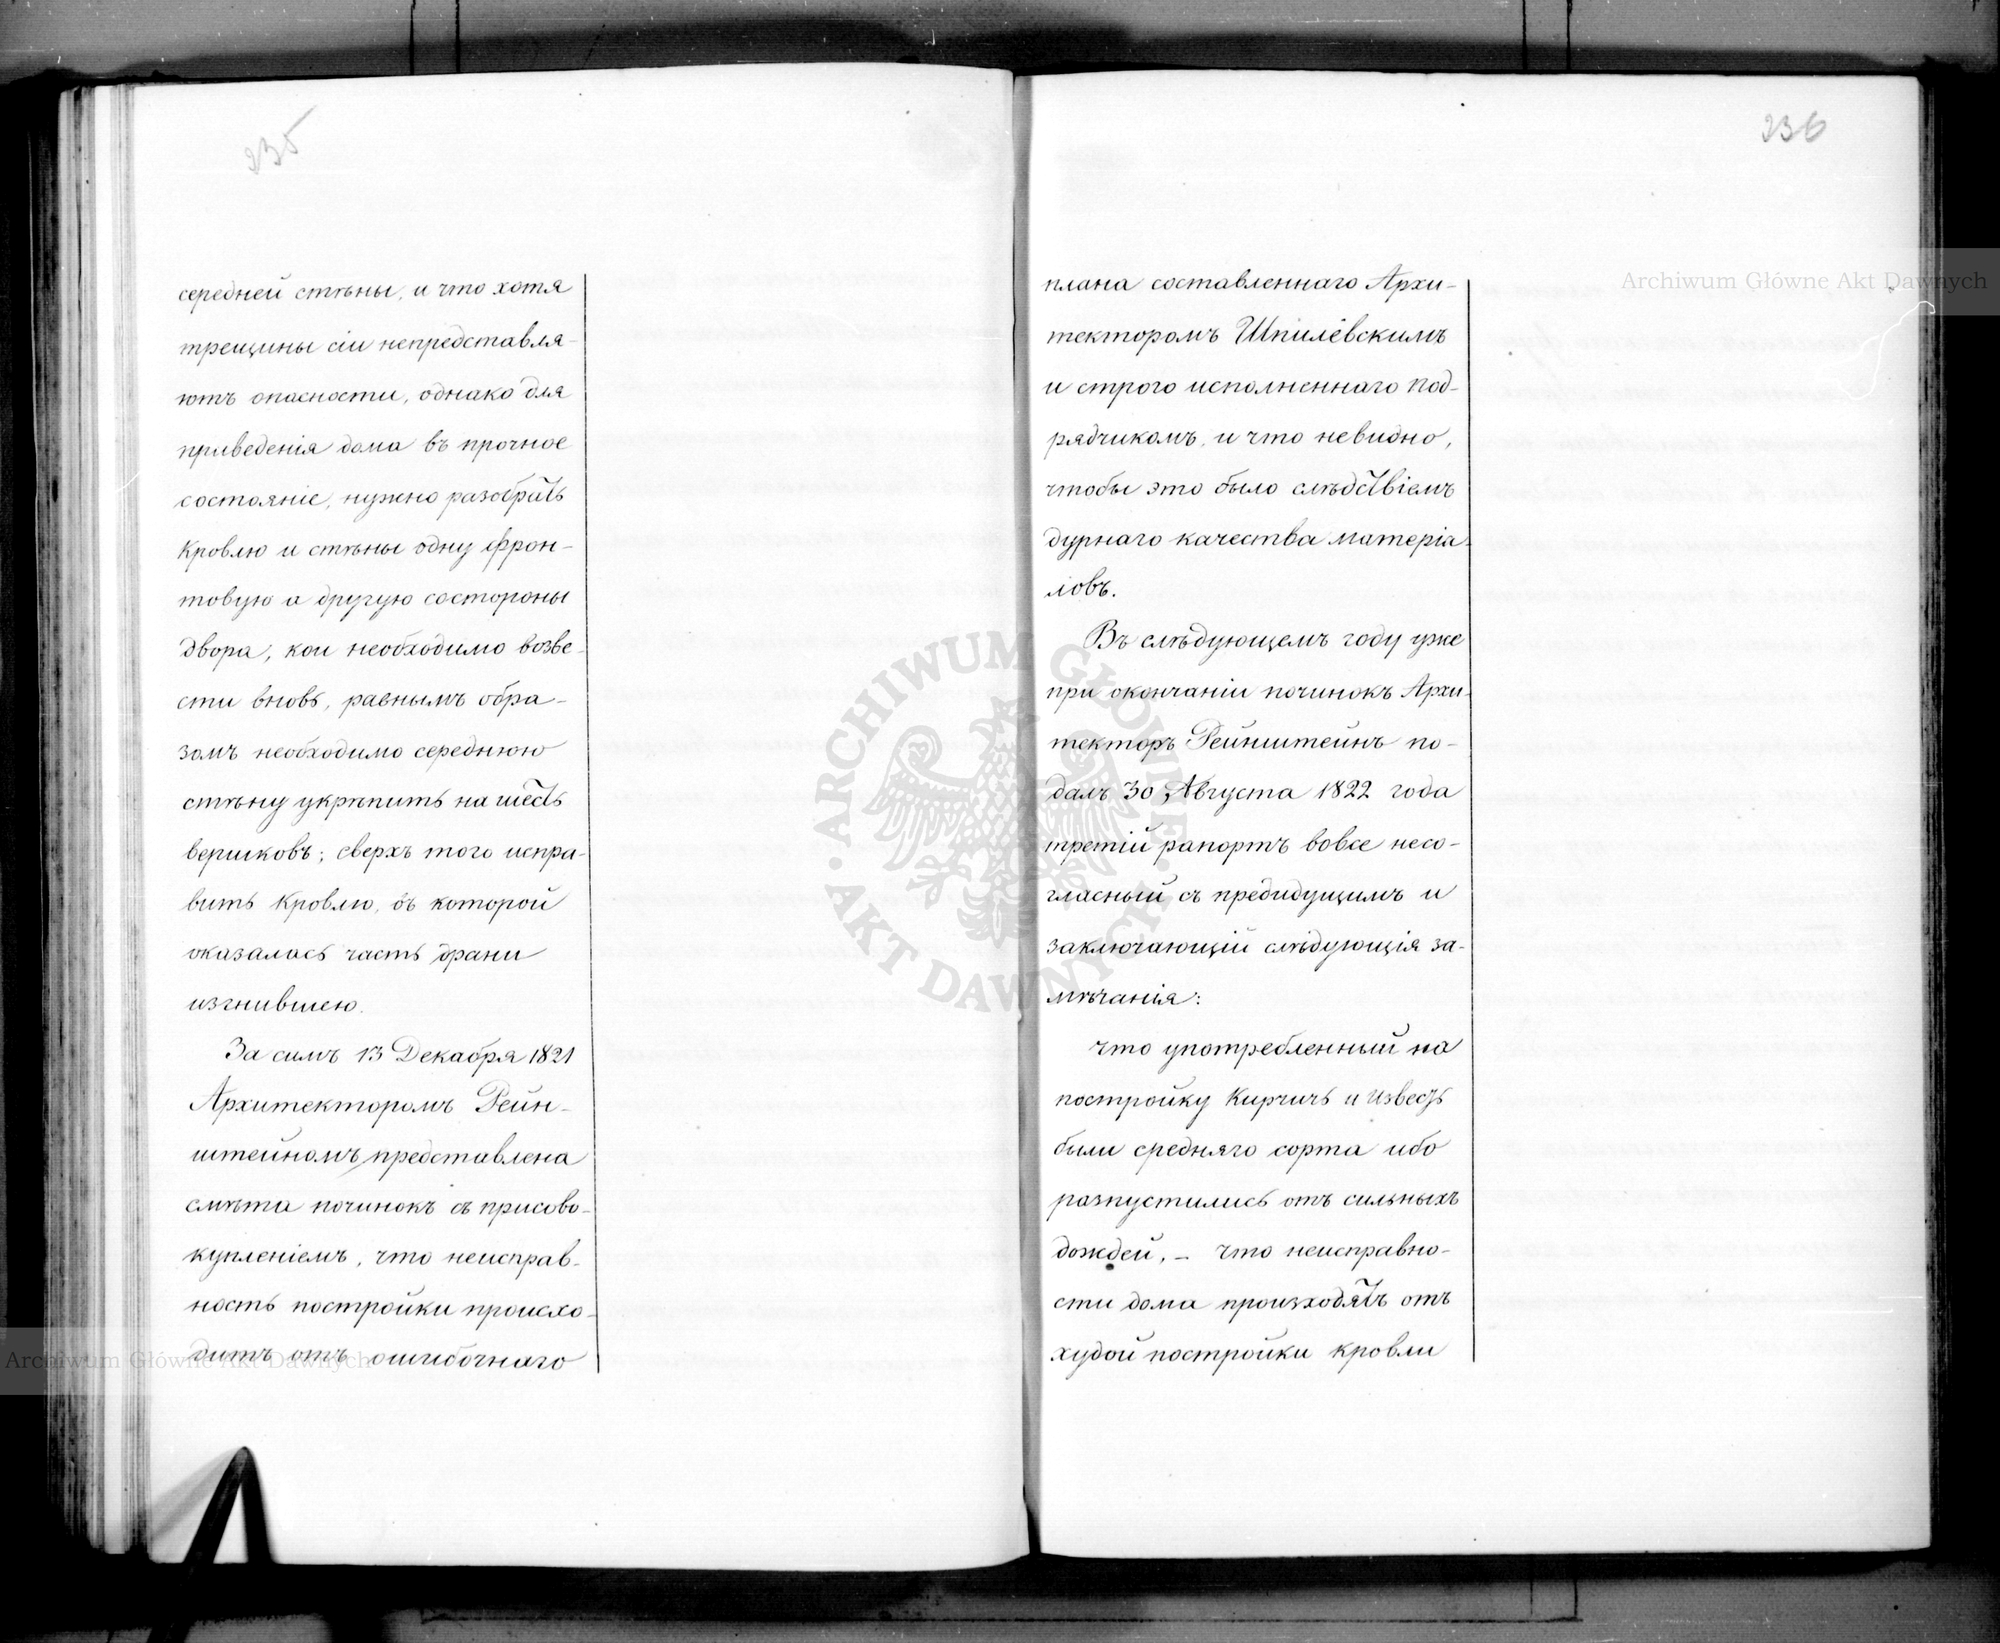 235
середней стѣны, и что хотя
трещины сіи непредставля-
ютъ опасности, однако для
приведенія дома въ прочное
состояніе, нужно разобрать
кровлю и стѣны одну фрон-
товую а другую состороны
двора, кои необходимо возве-
сти вновь, равнымъ обра-
зомъ необходимо середнюю
стѣну укрѣпить на шесть
вершковъ; сверхъ того испра-
вить кровлю, въ которой
оказалась часть драни
изгнившею.
За симъ 13 Декабря 1821
Архитекторомъ Рейн-
штейномъ представлена
смѣта починокъ съ присово-
купленіемъ, что неисправ-
ность постройки происхо-
дитъ отъ ошибочнаго
236
плана составленнаго Архи-
текторомъ Шпилевскимъ
и строго исполненнаго под-
рядчикомъ, и что невидно,
чтобы это было слѣдствіемъ
дурнаго качества матеріа-
ловъ.
Въ слѣдующемъ году уже
при окончаніи починокъ Архи-
текторъ Рейнштейнъ по-
далъ 30 Августа 1822 года
третій рапортъ вовсе несо-
гласный съ предидущимъ и
заключающій слѣдующія за-
мѣчанія:
что употребленный на
постройку Кирпичь и Известь
были средняго сорта ибо
разпустились отъ сильныхъ
дождей, – что неисправно-
сти дома произходятъ отъ
худой постройки кровли
Archiwum Główne Akt Dawnych
Archiwum Główne Akt Dawnych
ARCHIWUM GŁÓWNE · AKT DAWNYCH ·